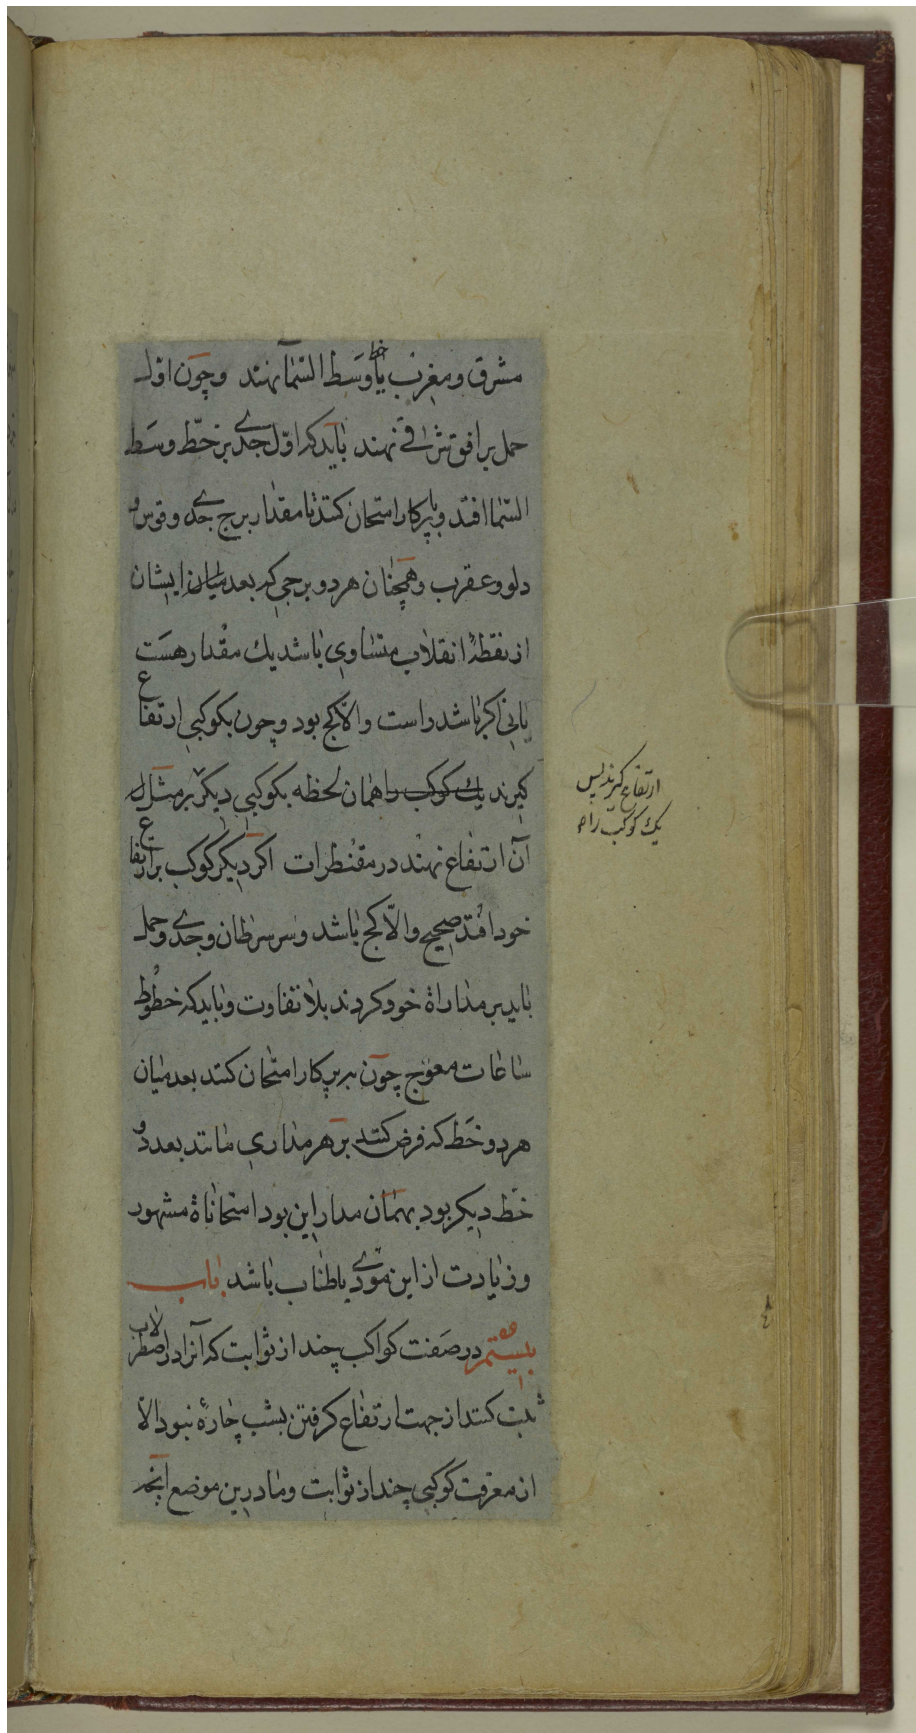 مشرق و مغرب یا خط وسط السّمآ نهند وچون اوّل
حمل بر افق شرقی نهند باید که اوّل جدی بر خطّ وسَط
السّما افتد و بپرکار امتحان کنند تا مقدار برج جدی وقوس و
دلو وعقرب وهمچنان هر دو برجی که بعد میان ایشان
از نقطهٔ انقلاب متساوی باشد یك مقدار هسَت
یانی اکر باشد راست والّا کج بود وچون بکوکبی ارتفاع
کیرند یك کوکب را همان لحظه بکوکبی دیکر بر مثل
آن ارتفاع نهند در مقنطرات اکر دیکر کوکب بر ارتفاع
خود افتد صحیح والّا کج باشد وسر سرطان وجدی وحمل
باید بر مداراة خود کردند بلا تفاوت وباید که خطُوط
ساعات معوّج چون به پرکار امتحان کنند بعد میان
هر دو خَط که فرض کنند بر هر مداری مانند بعد دو
خطّ دیکر بود بهمان مدار این بود امتحاناة مشهور
وزیادت از این مودّی باطناب باشد باب
بیستم در صَفت کواکب چند از ثوابت که آنرا در اصطرلاب
ثبت کنند از جهت ارتفاع کرفتن بشب چارهٔ نبود الّا
از معرفت کوکبی چند از ثوابت وما درین موضع آنچه
ارتفاع کیرند پس
یک کوکب را